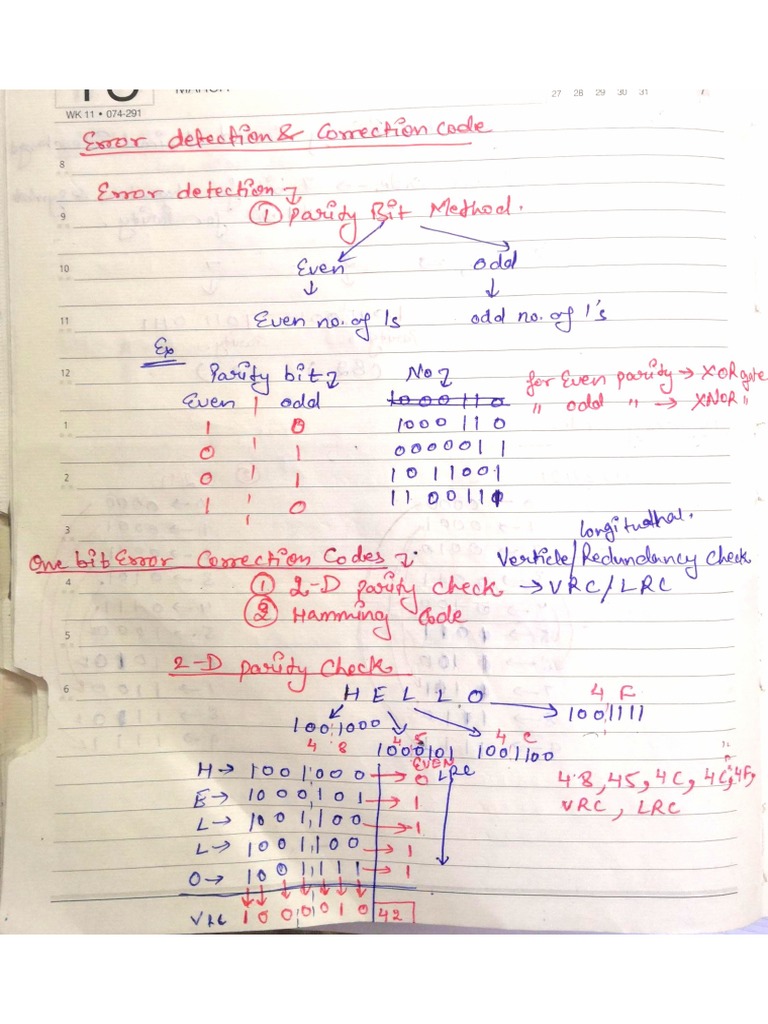 WK 11 • 074-291
27 28 29 30 31
Error detection & Correction code
8
Error detection
9
① Parity Bit Method.
10
Even odd
11
Even no. of 1s odd no. of 1's
Ex
12
Parity bit No
for Even parity → XOR gate
Even | odd 1000110 " odd " → XNOR "
1
1 0 1000110
0 1 0000011
2
0 1 1011001
1 0 110011
3
longitudinal.
One bit Error Correction Codes Verticle/Redundancy Check
4
① 2-D parity check → VRC/LRC
② Hamming Code
5
2-D parity Check
6
H E L L O → 4 F
1001111
1001000
4 8 4 5 4 C
1000101 1001100
EVEN
H → 1001000 → 0 LRC 48, 45, 4C, 4C, 4F,
E → 1000101 → 1 VRC, LRC
L → 1001100 → 1
L → 1001100 → 1
O → 1001111 → 1
VRC 1000010 42